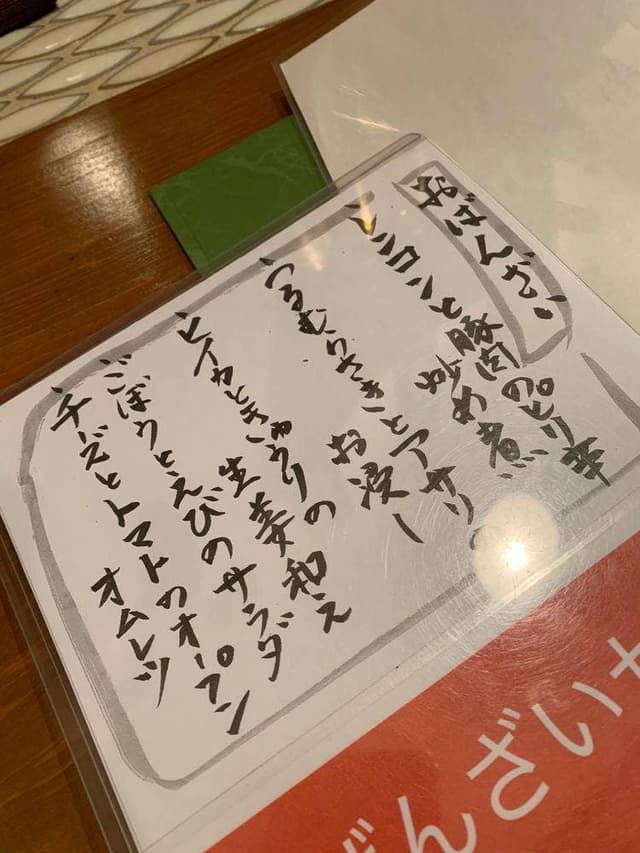 おばんざい
レンコンと豚肉のピリ辛
炒め煮
つるむらさきとアサリの
お浸し
ヒイカときゅうりの
生姜和え
ごぼうとえびのサラダ
チーズとトマトのオープン
オムレツ
ばんざい